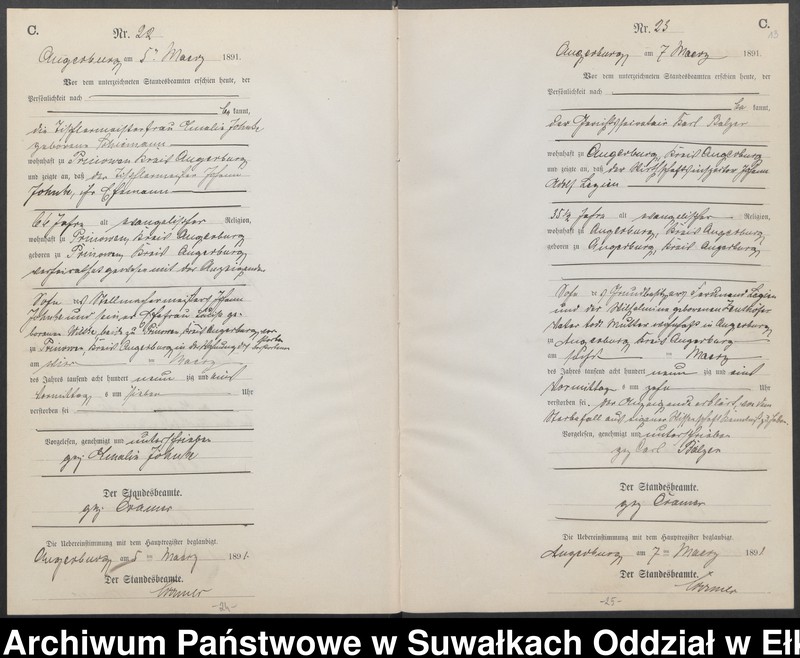 C.
Nr. 22
Augerburg am 5ten Maerz 1891.
Vor dem unterzeichneten Standesbeamten erschien heute, der
Persönlichkeit nach
be kannt,
die Tischlermeisterfrau Amalie Johnke
geborene
wohnhaft zu Prinowen Kreis Angerburg
und zeigte an, daß der Tischlermeister Johann
Johnke, ihr Ehemann
64 Jahre alt evangelischer Religion,
wohnhaft zu Prinowen, Kreis Angerburg
geboren zu Prinowen, Kreis Angerburg
verheirathet gewesen mit der Anzeigenden
Sohn des Stellmachermeisters Johann
Johnke und seiner Ehefrau Louise ge-
borenen beide zu Prinowen, Kreis Angerburg, ver-
storben
zu Prinowen, Kreis Angerburg in der Wohnung des Verstorbenen
am vier ten Maerz
des Jahres tausend acht hundert neun zig und eins
Vormittag s um sieben Uhr
verstorben sei
Vorgelesen, genehmigt und unterschrieben
gez. Amalie Johnke
Der Standesbeamte.
gez. Cramer
Die Uebereinstimmung mit dem Hauptregister beglaubigt.
Angerburg am 5ten Maerz 1891.
Der Standesbeamte.
Cramer
-24-
C.
13
Nr. 23
Angerburg, am 7 Maerz 1891.
Vor dem unterzeichneten Standesbeamten erschien heute, der
Persönlichkeit nach
be kannt,
der Gerichtssecretair Karl Balzer
wohnhaft zu Angerburg, Kreis Angerburg
und zeigte an, daß der Wirthschaftsinspector Johann
Adolf Legien
35 1/2 Jahre alt evangelischer Religion,
wohnhaft zu Angerburg, Kreis Angerburg,
geboren zu Angerburg, Kreis Angerburg
Sohn des Grundbesitzers Ferdinand Legien
und der Wilhelmine geborenen
Vater todt Mutter wohnhaft in Angerburg
zu Angerburg Kreis Angerburg
am ten Maerz
des Jahres tausend acht hundert neun zig und eins
Vormittag s um zehn Uhr
verstorben sei, der Anzeigende erklärt, von dem
Sterbefall aus eigener Wissenschaft Kenntniß zu haben.
Vorgelesen, genehmigt und unterschrieben
gez Carl Balzer
Der Standesbeamte.
gez Cramer
Die Uebereinstimmung mit dem Hauptregister beglaubigt.
Angerburg am 7ten Maerz 1891
Der Standesbeamte.
Cramer
-25-
Archiwum Państwowe w Suwałkach Oddział w Ełk